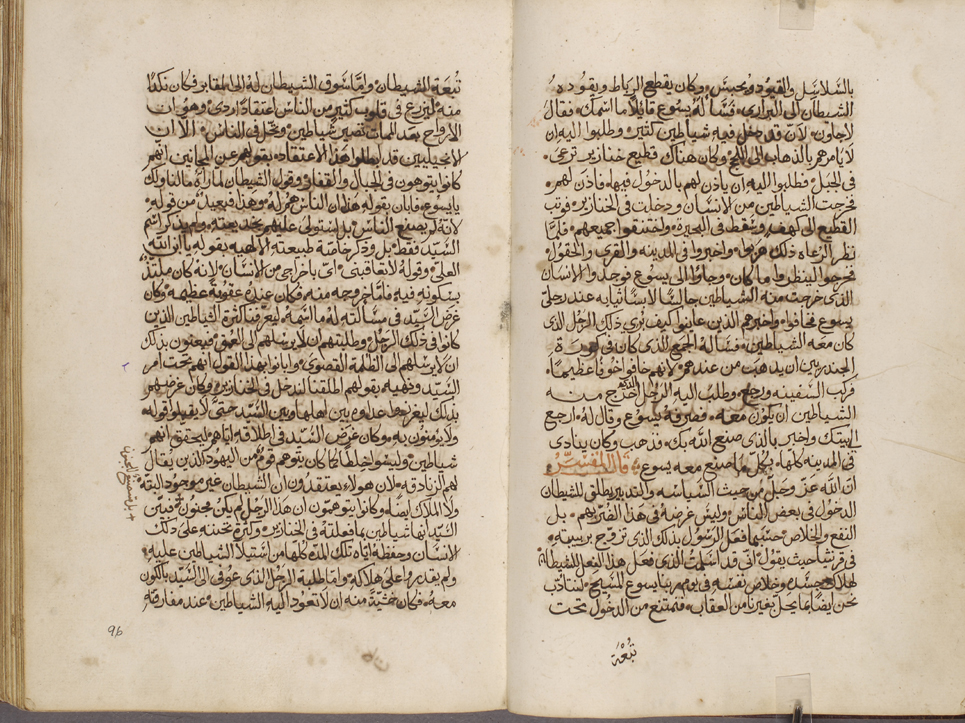 بالسلاسل والقيود ويحبس وكان يقطع الرباط ويقوده
الشيطان الى البراري فساله يسوع قايلا ما اسمك فقال
لاجاون لان قد دخل فيه شياطين كثير وطلبوا اليه ان
لا يامرهم بالذهاب الى اللج وكان هناك قطيع خنازير ترعى
في الجبل فطلبوا اليه ان ياذن لهم بالدخول فيها فاذن لهم
فخرجت الشياطين من الانسان ودخلت في الخنازير فوثب
القطيع الى كهف وسقط في البحيرة واختنقوا جميعهم فلما
نظر الرعاه ذلك هربوا واخبروا في المدينه والقرى والحقول
فخرجوا لينظروا ما كان وجاوا الى يسوع فوجدوا الانسان
الذي خرجت منه الشياطين جالسا لابسا ثيابه عند رجلي
يسوع فخافوا واخبرهم الذين عاينوا كيف بري ذلك الرجل الذي
كان معه الشياطين فساله الجمع الذي كان في كورة
الجدريين ان يذهب من عندهم لانهم خافوا خوفا عظيما
فركب السفينه ورجع وطلب اليه الرجل الذي خرج منه
الشياطين ان يكون معه فصرفه يسوع وقال له ارجع
الى بيتك واخبر بالذي صنع الله بك فذهب وكان ينادي
في المدينه كلها بكل ما صنع معه يسوع قال المفسر
ان الله عز وجل من حيث السياسه والتدبير يطلق للشيطان
الدخول في بعض الناس وليس غرضه في هذا الضر بهم بل
النفع والخلاص حسبما فعل الرسول بذلك الذي تزوج بربيبه
في قرنثيا حيث يقول اني قد اسلمت الذي فعل هذا الفعل للشيطان
لهلاك جسده وخلاص نفسه في يوم ربنا يسوع المسيح لنتادب
نحن ايضا بما يحل بغيرنا من العقاب فنمتنع من الدخول تحت
تبعة
تبعة الشيطان واما سوق الشيطان له الى المقابر فكان نكدا
منه ليزرع في قلوب كثير من الناس اعتقادا ردي وهو ان
الارواح بعد الممات تصير شياطين وتحل في الناس الا ان
الانجيليين قد ابطلوا هذا الاعتقاد بقولهم عن المجانين انهم
كانوا يتوهون في الجبال والقفار وقول الشيطان لما راه ما لنا ولك
يا يسوع فابان بقوله هذا ان الناس هم له وهذا فبعيد من قوله
لانه لم يصنع الناس بل استولى عليهم بخديعته ولم يذكر اسم
السيد فقط بل وذكر خاصة طبيعته الالهيه بقوله يا ابن الله
العلي وقوله لا تعاقبني اي باخراجي من الانسان لانه كان ملتذ
بسكونه فيه فاما خروجه منه فكان عنده عقوبة عظيمه وكان
غرض السيد في مسالته له ما اسمه ليعرفنا كثرة الشياطين الذين
كانوا في ذلك الرجل وطلبتهم ان لا يرسلهم الى العمق فيعنون بذلك
ان لا يرسلهم الى الظلمة القصوى وابانوا بهذا القول انهم تحت امر
السيد ونهيه بقولهم اطلقنا لندخل في الخنازير وكان غرضهم
بذلك ليغرجوا عداوه بين اهلها وبين السيد حتى لا يقبلوا قوله
ولا يومنون به وكان غرض السيد في اطلاقه اياهم ليحقق انهم
شياطين وليسوا خيلطا كما كان يتوهم قوم من اليهود الذين يقال
لهم الزنادقه لان هولاء يعتقدون ان الشيطان غير موجود البته
ولا الملاك ايضا وكانوا يتوهمون ان هذا الرجل لم يكن مجنون فبين
السيد انها شياطين بما فعلته في الخنازير وكثرة تحننه على ذلك
الانسان وحفظه اياه تلك المده كلها من استيلا الشياطين عليه
ولم يقدروا على هلاكه واما طلبة الرجل الذي عوفي الى السيد بالكون
معه فكان خشية منه ان لا تعود اليه الشياطين عند مفارقته
96